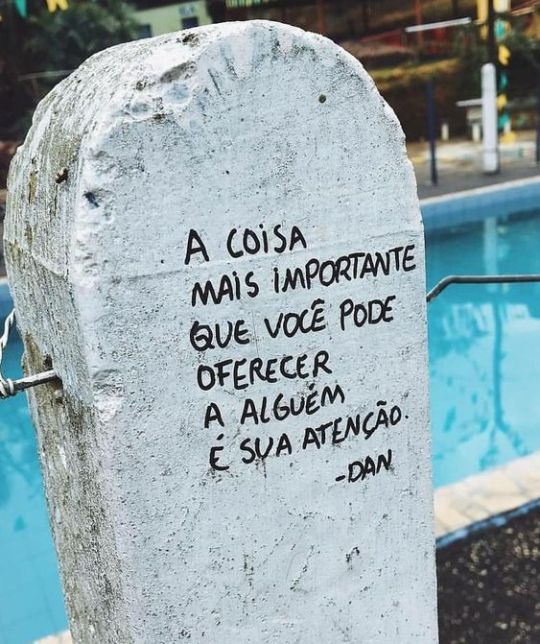 A COISA
MAIS IMPORTANTE
QUE VOCÊ PODE
OFERECER
A ALGUÉM
É SUA ATENÇÃO.
-DAN